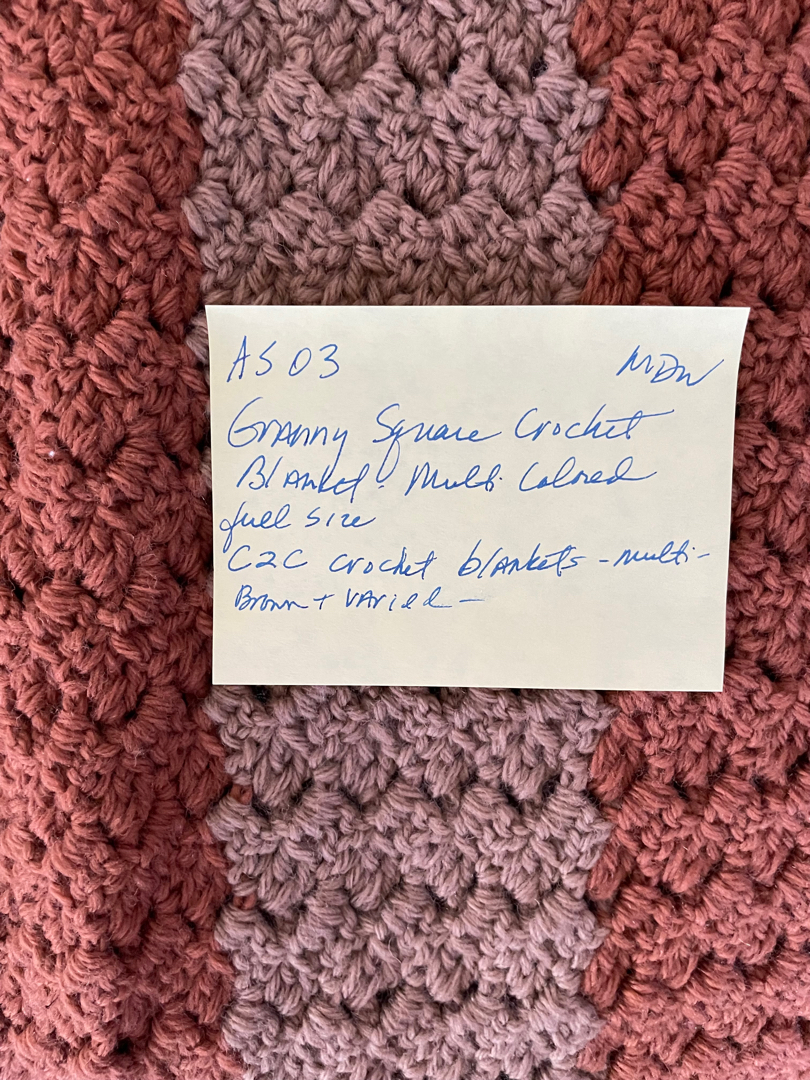 AS 03 MDW
Granny Square Crochet
Blanket - Multi Colored
full size
C2C crochet blankets - multi -
Brown + varied -